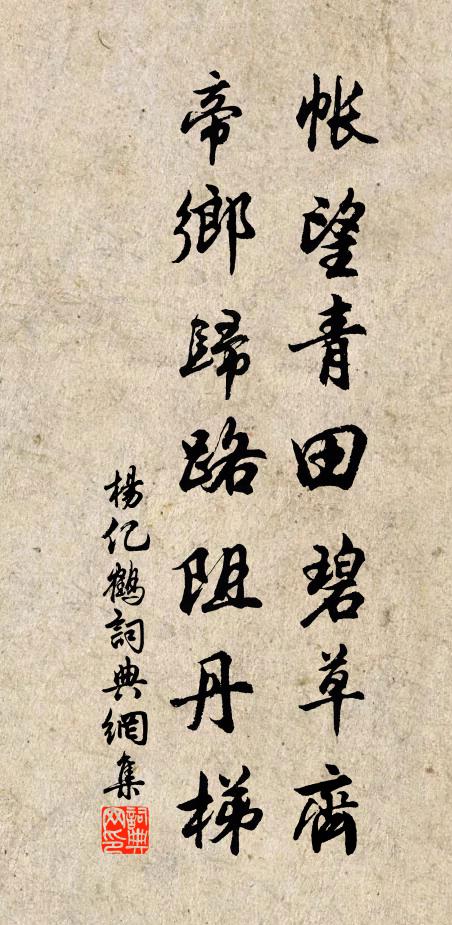 帐望青田碧草齊
帝鄉歸路阻丹梯
楊亿鶴詞典網集
詞典网印